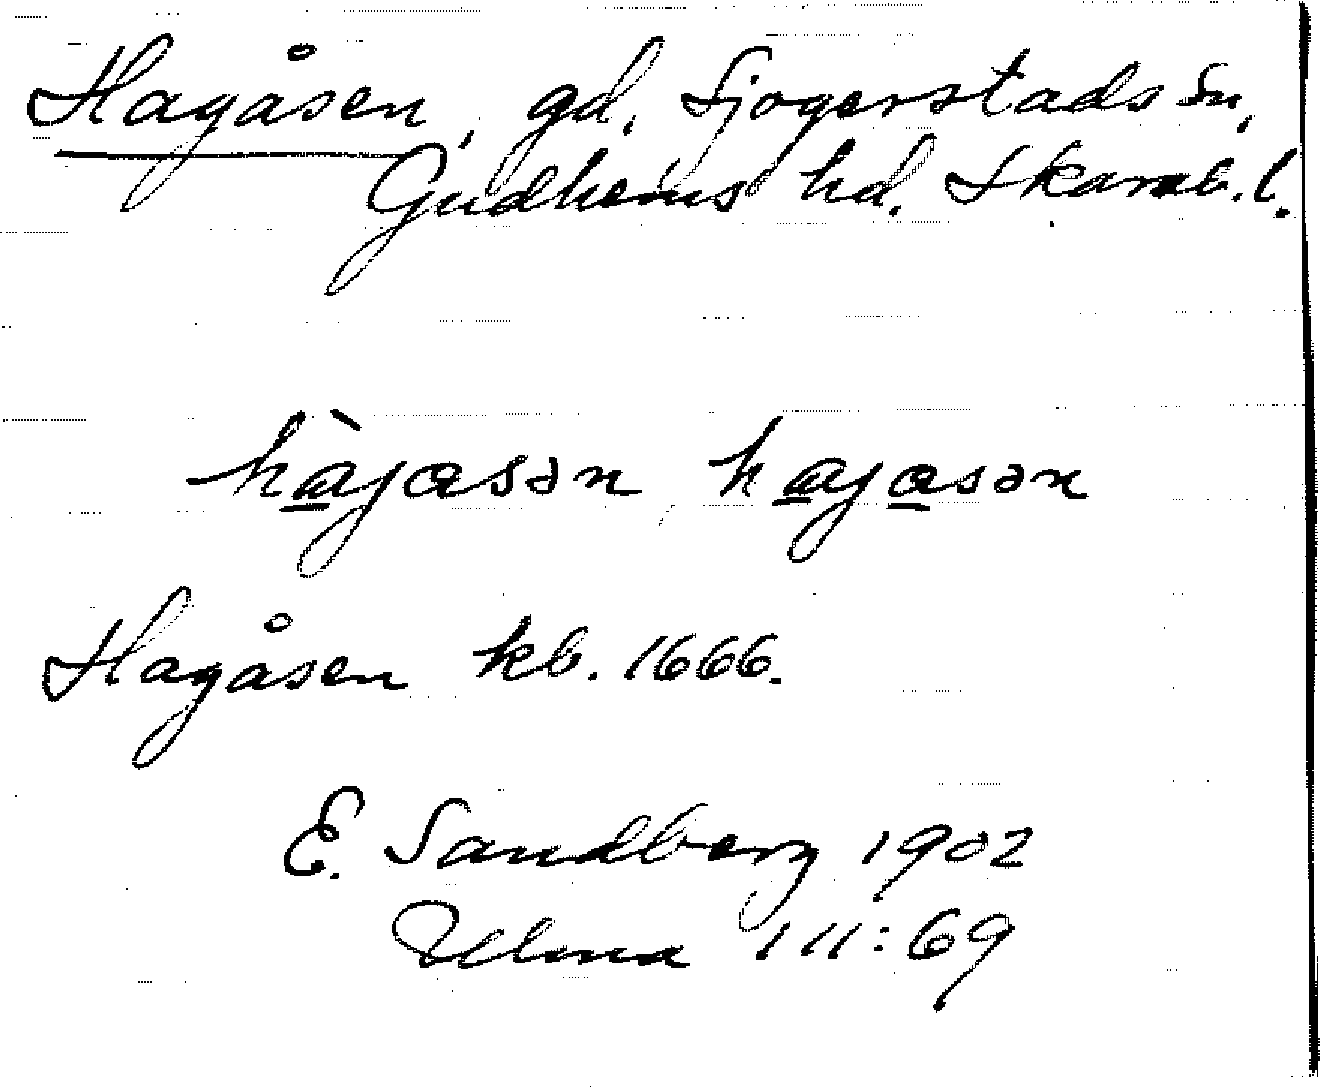 Hagåsen, gd. Sjogerstads sn,
Gudhems hd. Skarab. l.
hàgasən hagasən
Hagåsen kb. 1666.
E. Sandberg 1902
Ulma 111:69